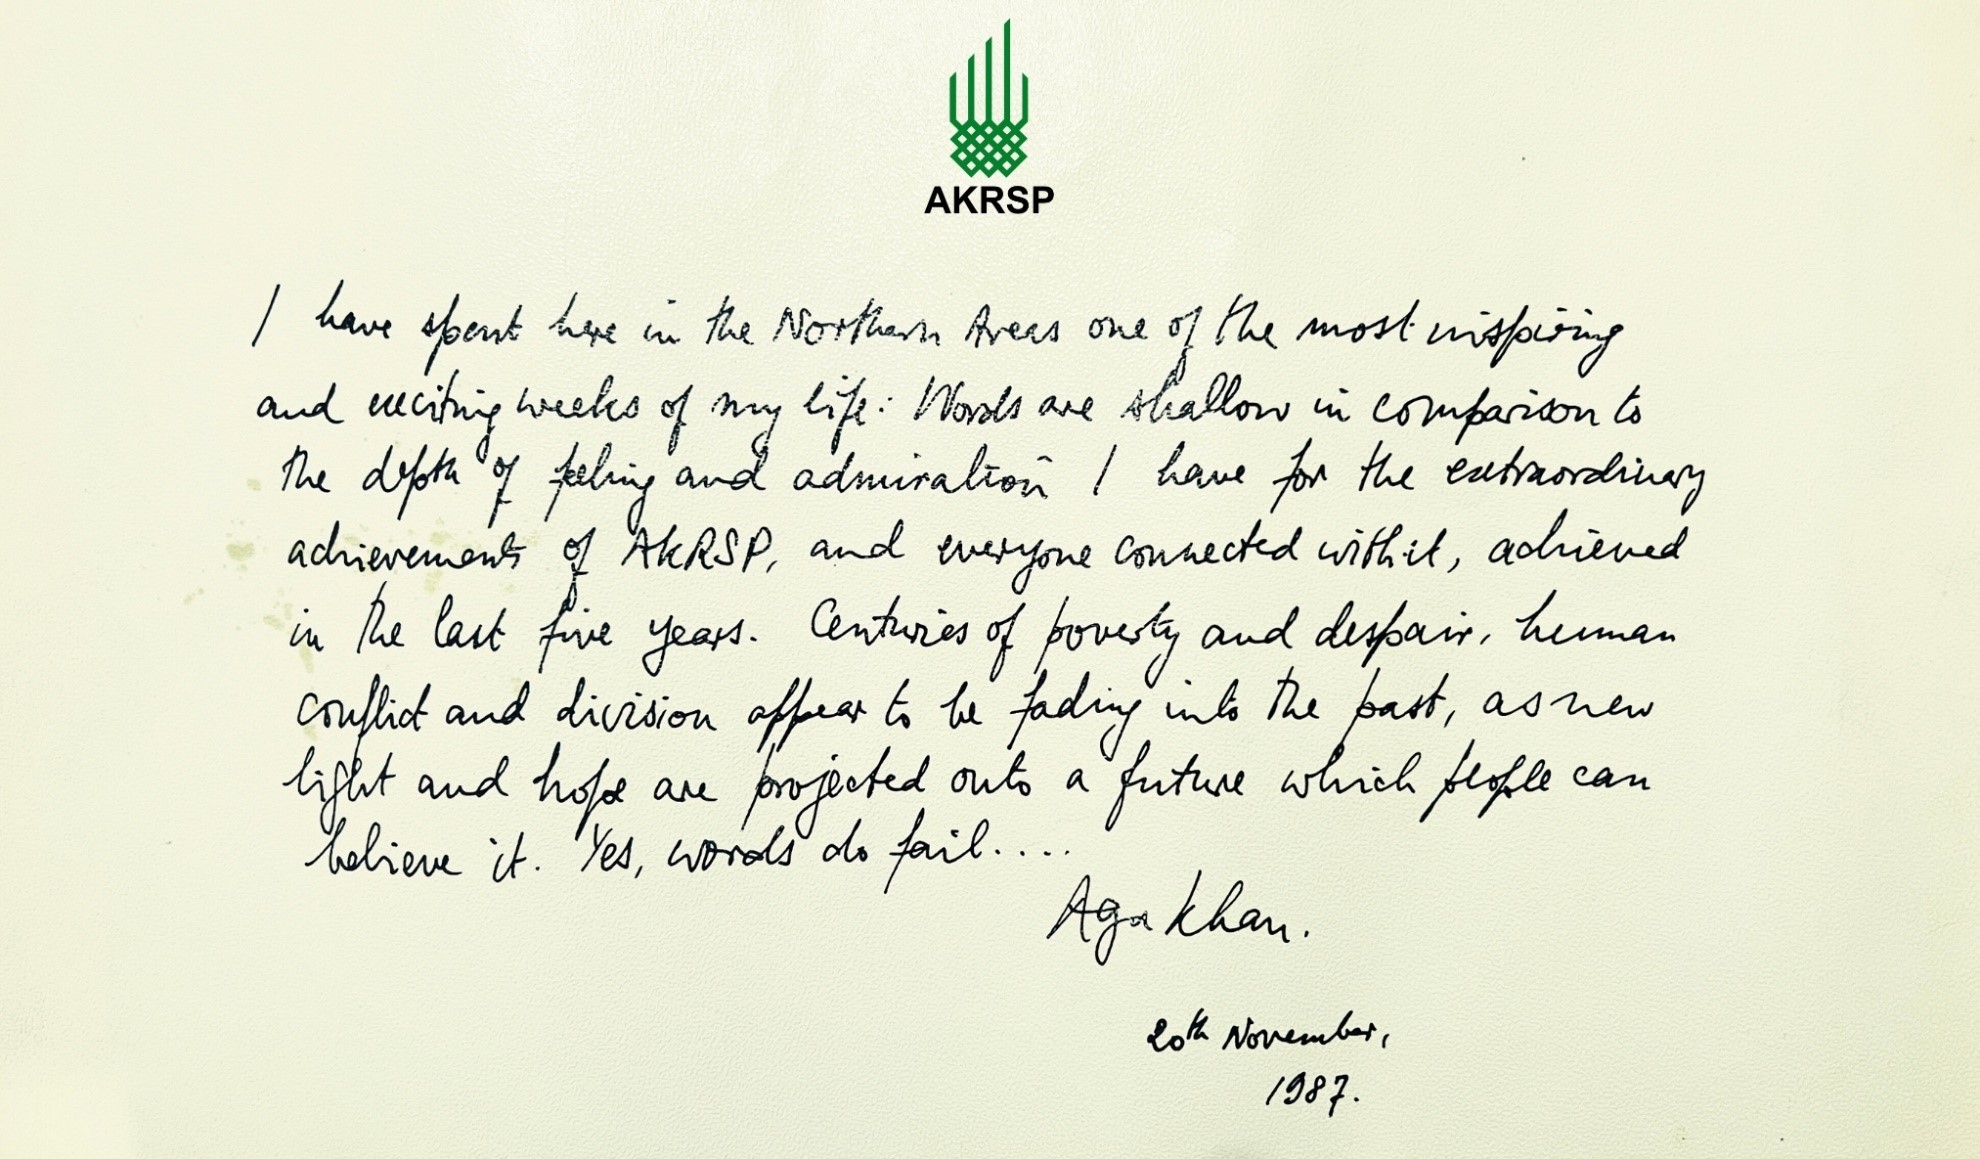 AKRSP
I have spent here in the Northern Areas one of the most inspiring
and exciting weeks of my life: Words are shallow in comparison to
the depth of feeling and admiration I have for the extraordinary
achievements of AKRSP, and everyone connected with it, achieved
in the last five years. Centuries of poverty and despair, human
conflict and division appear to be fading into the past, as new
light and hope are projected onto a future which people can
believe it. Yes, words do fail....
Aga Khan.
20th November,
1987.